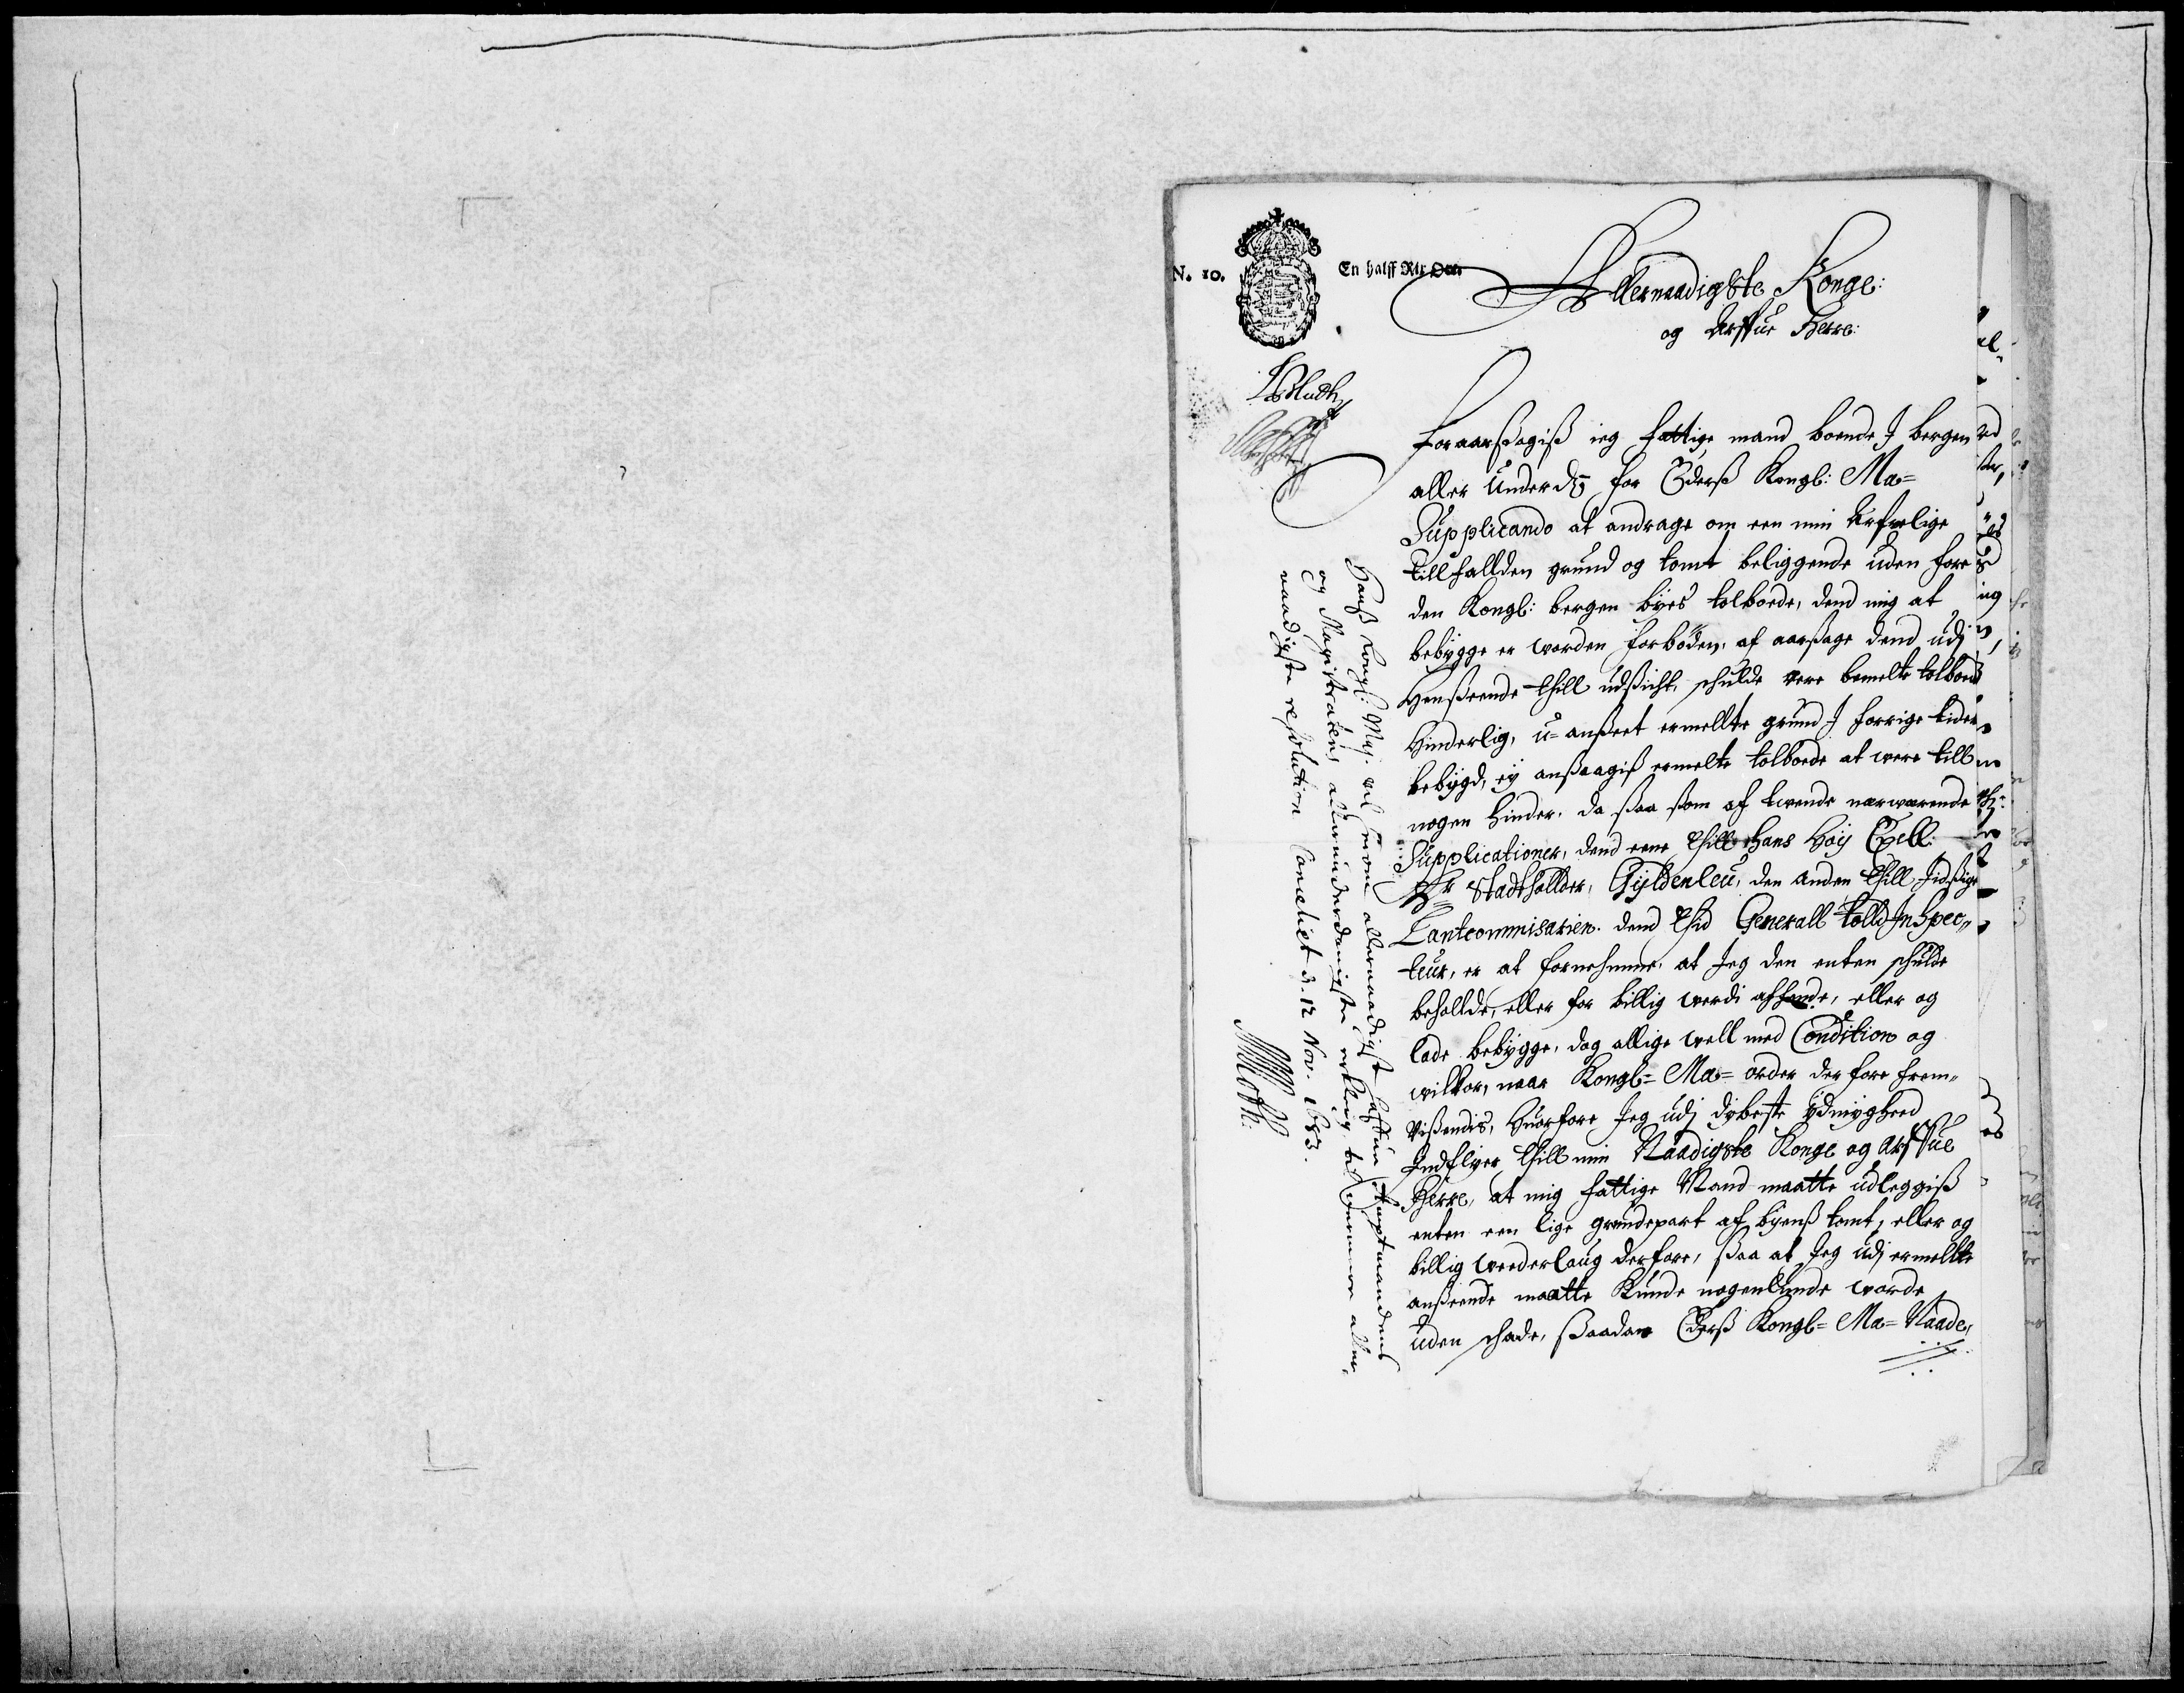 N. 10.
En halff Rix Dlr.
Allernaadigste Konge:
og Arffue Herre:
foraarßagiß ieg fattige mand boende J bergen
aller underd: for Eders Kongl: Ma=
Supplicando at andrage om een min Arfvelige
tillfallden grund og tomt beliggende uden fore
den Kongl: bergen byes tolboede, dend mig at
bebygge er worden forböden, af aarßage dend udj
Henßeende thill udsicht, schulde vere bemelte tolboed
Hinderlig, u=anßeet ermellte grund J forrige tider
bebygd, ey anßaagiß ermelte tolboede at were till
nogen hinder. da ßaa ßom af tvende nerwerende
Supplicationer, dend eene thill Hans Höy Exell:
Hr Stadthollder, Gyldenleu, den anden thill
Lantcommisarien. dend tid Generall tolld Jnspec,,
teur, er at fornehmme, at Jeg den enten schulde
behollde, eller for billig werdi afhende, eller og
lade bebygge, dog allige well med Condition og
wilkor, naar Kongl= Ma= order der fore frem,,
Vißendis, Huorfore Jeg udj dybeste ydmyghed
Jndflyer thill min Naadigste Konge og Arffue
Herre, at mig fattige Mand maatte udleggiß
enten een lige grundepart af byenß tomt, eller og
billig weederlaug derfore, ßaa at Jeg udj ermellte
anßeende maatte kunde nogenlunde worde
uden schade, ßaadan Eders Kongl= Ma= Naade,
Hanß Kongl: May. vil herom allernaadigst hafue Stiftamtmandens
og Magistratens allerunderdanigste erklering til wiidere aller
naadigste resolution Cancliet d. 12 Nov. 1683.
MMoth: